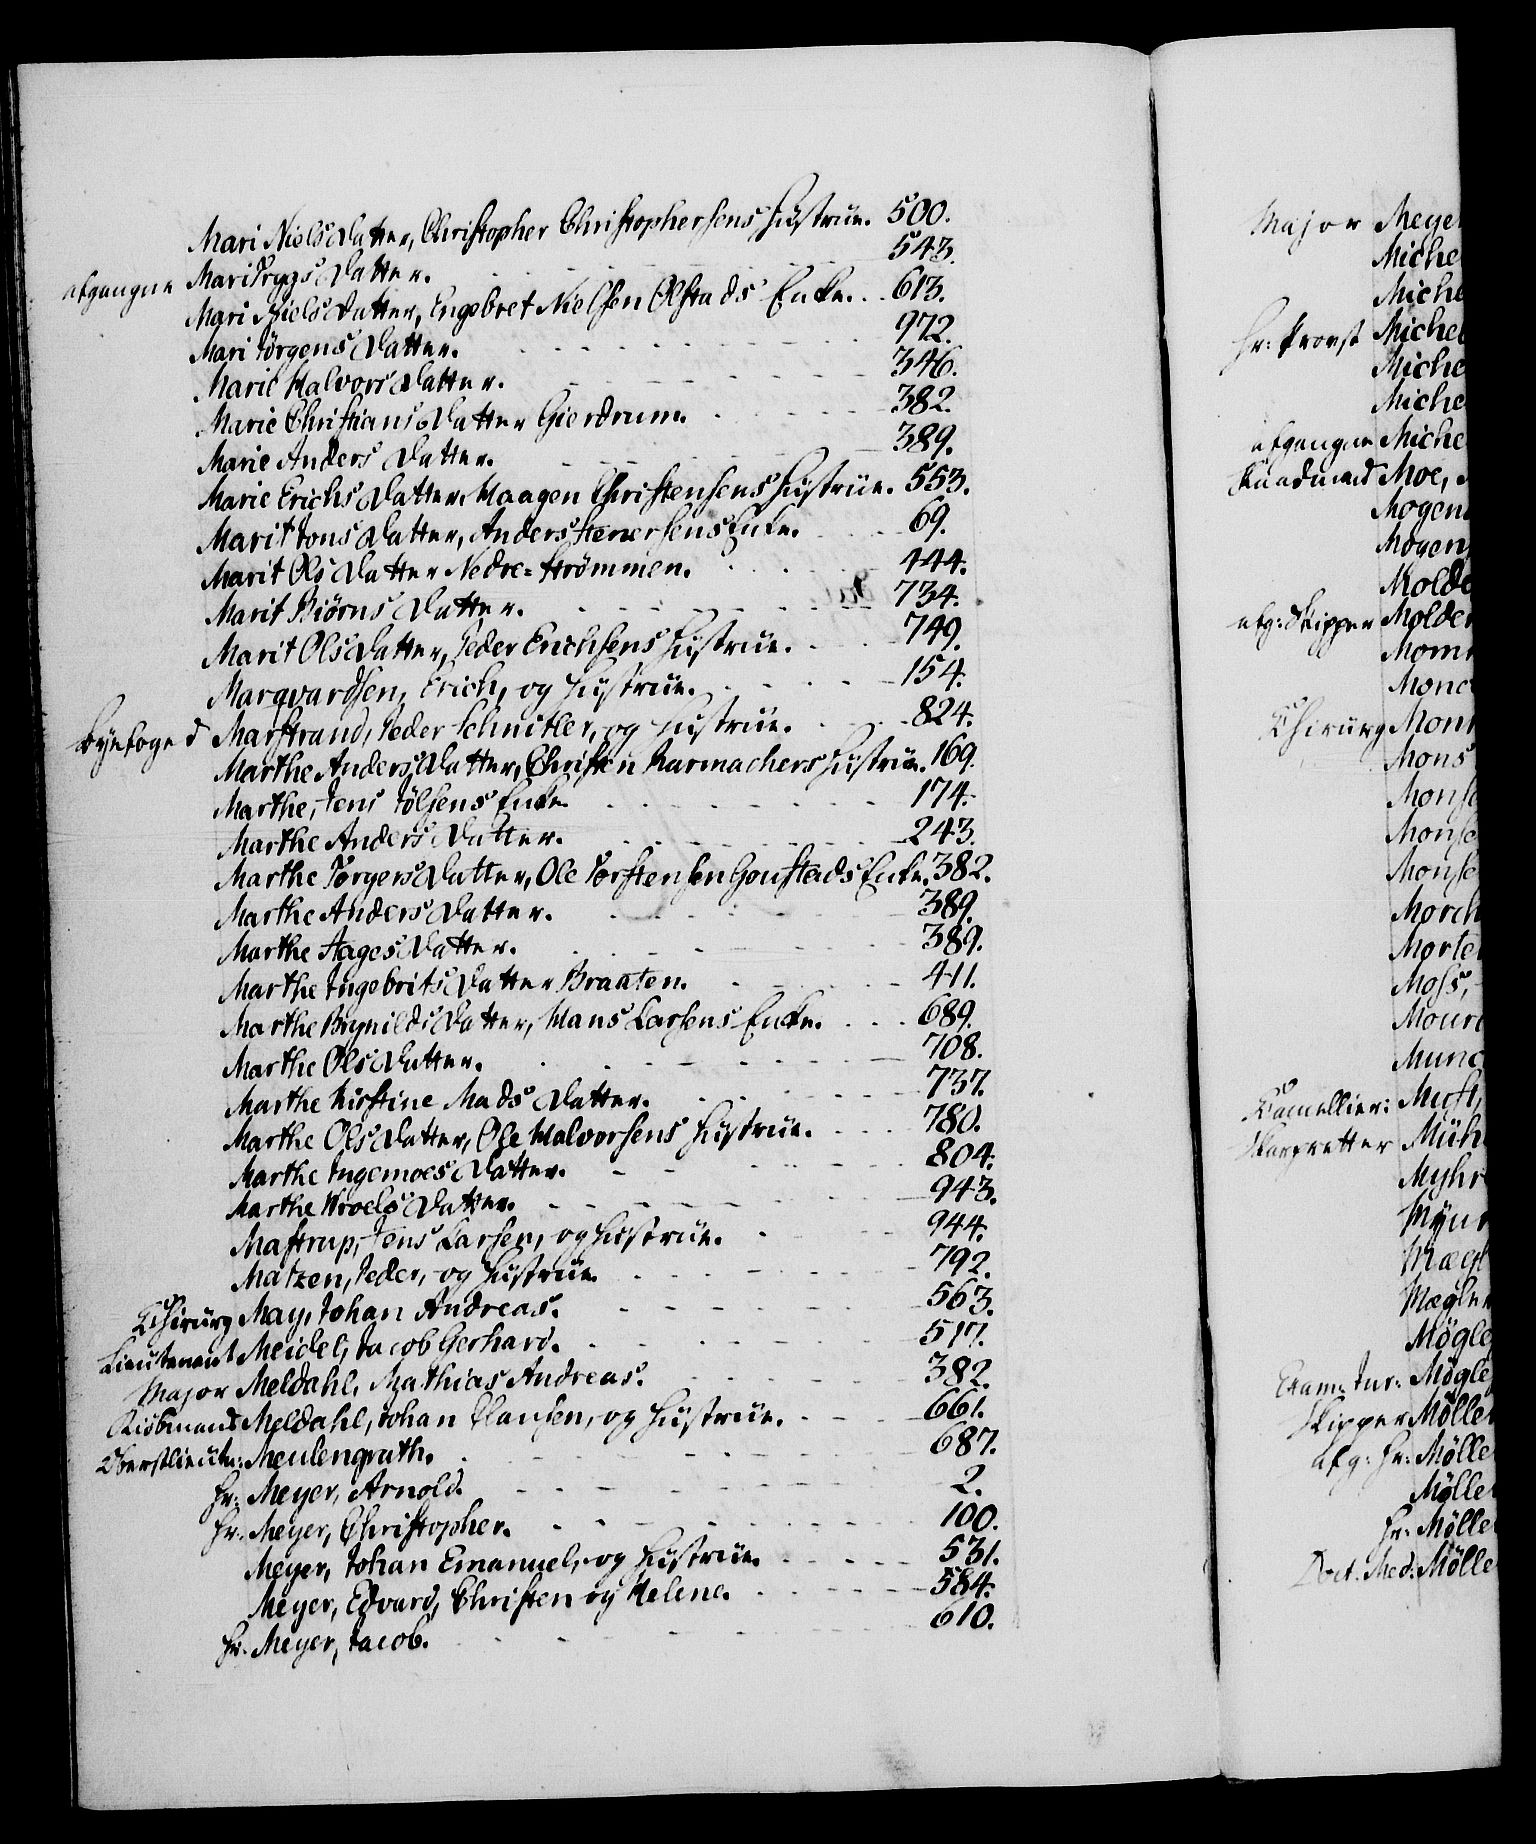 Mari Niels Datter, Christopher Christophersens Hustrue. 500.
afgangne Mari Trygs Datter. 543.
Mari Niels Datter, Engebret Nielsen Ølstads Enke. 613.
Mari Jørgens Datter. 972.
Marie Halvors Datter. 346.
Marie Christians Datter Gierdrum. 382.
Marie Anders Datter. 389.
Marie Erichs Datter, Haagen Christensens Hustrue. 553.
Marit Jons Datter, Anders Stenersens Enke. 69.
Marit Ols Datter Nedre=Strømmen. 444.
Marit Biørns Datter. 734.
Marit Ols Datter, Peder Erichsens Hustrue. 749.
Marqvardsen, Erich, og Hustrue. 154.
Byefoged Marstrand, Peder Schnitler, og Hustrue. 824.
Marthe Anders Datter, Christen Karmachers Hustrue. 169.
Marthe, Jens Jølsens Enke 174.
Marthe Anders Datter. 243.
Marthe Torgers Datter, Ole Torstensen Goustads Enke. 382.
Marthe Anders Datter. 389.
Marthe Aages Datter. 389.
Marthe Ingebrits Datter Braaten. 411.
Marthe Brynilds Datter, Hans Larsens Enke. 689.
Marthe Ols Datter. 708.
Marthe Kirstine Mads Datter. 737.
Marthe Ols Datter, Ole Halvorsens Hustrue. 780.
Marthe Ingemoes Datter. 804.
Marthe Hroels Datter. 943.
Mastrup, Jens Larsen, og Hustrue. 944.
Matzen, Peder, og Hustrue. 792.
Chirurg May, Johan Andreas. 563.
Lieutenant Meidel, Jacob Gerhard. 517.
Major Meldahl, Mathias Andreas. 382.
Kiøbmand Meldahl, Johan Clausen, og Hustrue. 661.
Oberstlieutn: Meulengrath. 687.
Hr: Meyer, Arnold. 2.
Hr. Meyer, Christopher. 100.
Meyer, Johan Emanuel, og Hustrue. 531.
Meyer, Edvard, Christen og Helene. 584.
Hr. Meyer, Jacob. 610.
Major Meye
Miche
Miche
Hr: Provst Michel
Miche
Miche
afgangne Miche
Moe,
Mogen
Mogen
Molde
afg: Skipper Molder
Mom
Monc
Chirurg Monr
Mons
Monse
Monse
Monse
Morch
Morte
Moss,
Mour
Munc
Cancellier: Must,
Skarpretter Mühl
Myhr
Mynt
Mægl
Mægler
Mögle
Exam: Jur: Mögle
Skipper Mölle
afg: Hr: Mölle
Mölle
Hr: Mölle
Doct. Med: Mölle